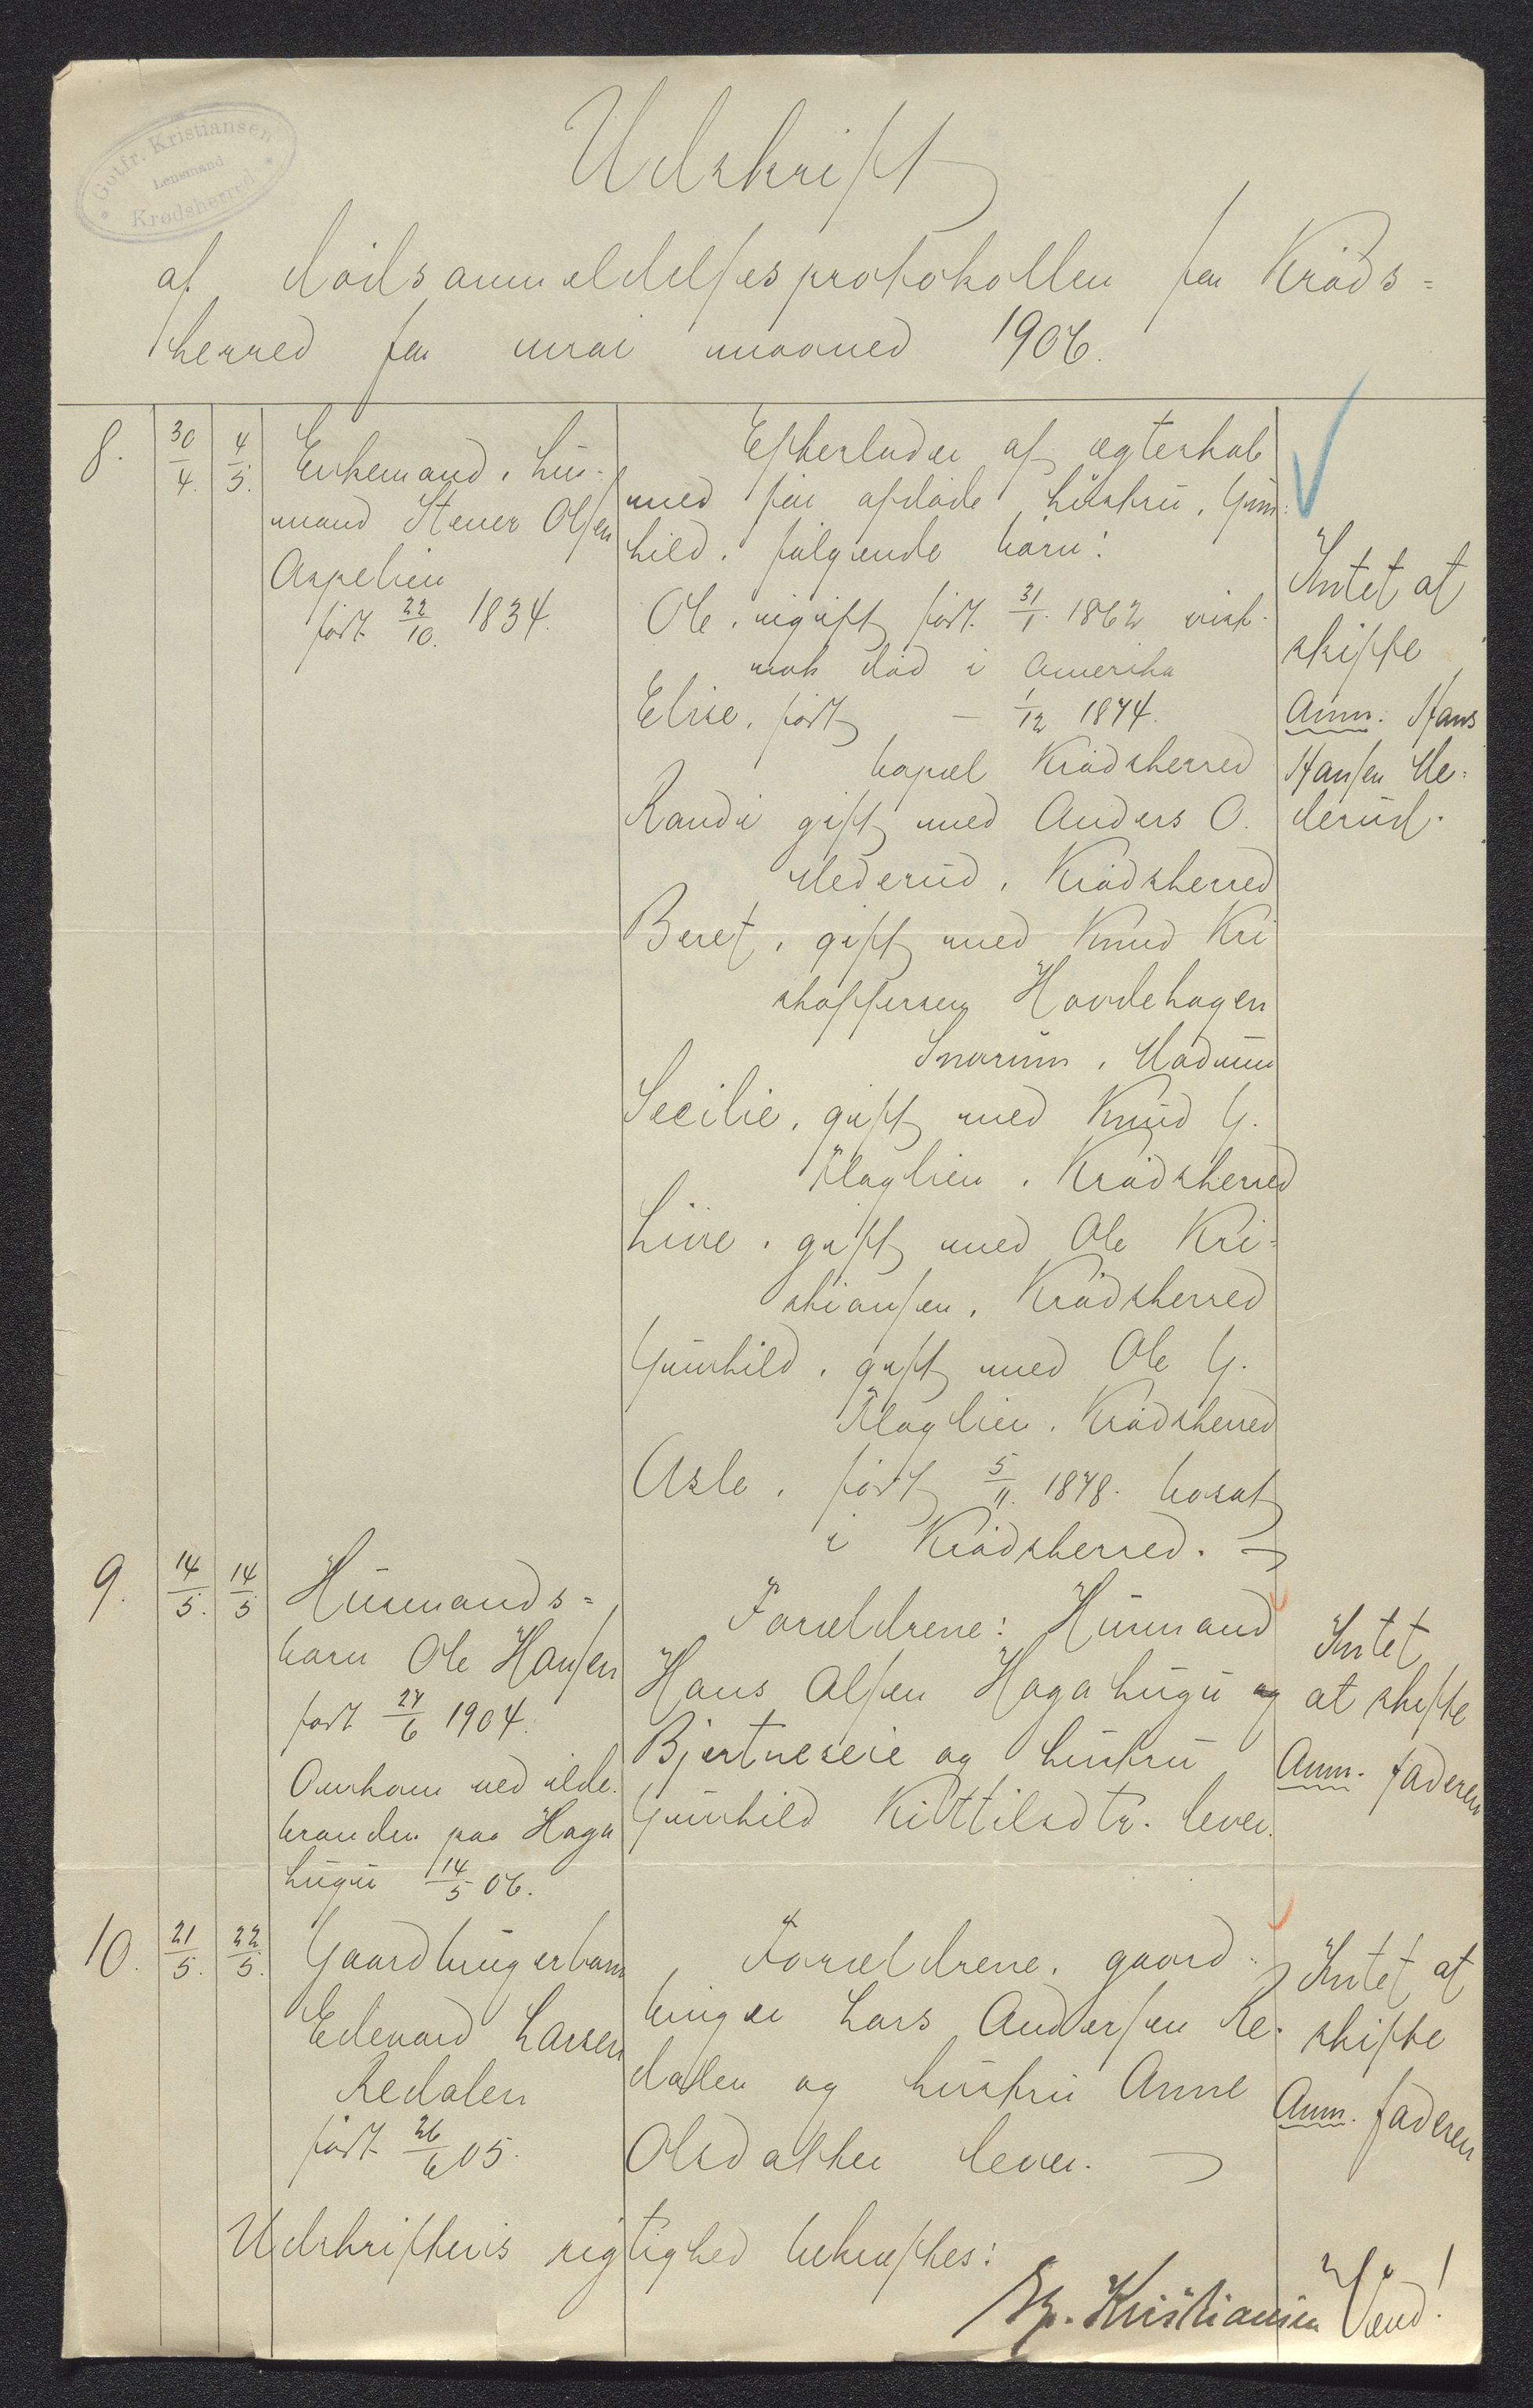 Gotfr. Kristiansen
Lensmand
Krødsherred
Udskrift
af dødsanmeldelsesprotokollen for Krøds=
herred for mai maaned 1906.
8. 30/4. 4/5. Enkemand, hus-
mand Stener Olsen
Aspelien
født 22/10. 1834.
Efterlader af ægteskab
med før afdøde hustru, Gun-
hild, følgende børn:
Ole, ugift, født 31/1. 1862 vist-
nok død i Amerika
Elise, født – 1/12 1874.
bopæl Krødsherred
Randi gift med Anders O.
Mederud, Krødsherred
Beret, gift med Knud Kri
stoffersen Hovdehagen
Snarum, Modum
Secilie, gift med Knud G.
Slaglien, Krødsherred
Live, gift med Ole Kri-
stiansen, Krødsherred
Gunhild, gift med Ole G.
Slaglien, Krødsherred
Asle, født 5/11. 1878. bosat
i Krødsherred.
Intet at
skifte
Anm. Hans
Hansen Me-
derud.
9. 14/5. 14/5 Husmands=
barn Ole Hansen
født 27/6 1904.
Omkom ved ilde-
branden paa Haga
hugu 14/5 06.
Forældrene: Husmand
Hans Olsen Hagahugu og
Bjertneseie og hustru
Gunhild Kittilsdtr. lever.
Intet
at skifte
Anm. faderen
10. 21/5. 22/5. Gaardbrugerbarn
Edevard Larsen
Redalen
født 26/6 05.
Forældrene, gaard-
bruger Lars Andersen Re-
dalen og hustru Anne
Olsdatter lever.
Intet at
skifte
Anm. faderen
Udskriftens rigtighed bekræftes:
Kristiansen
Vend!